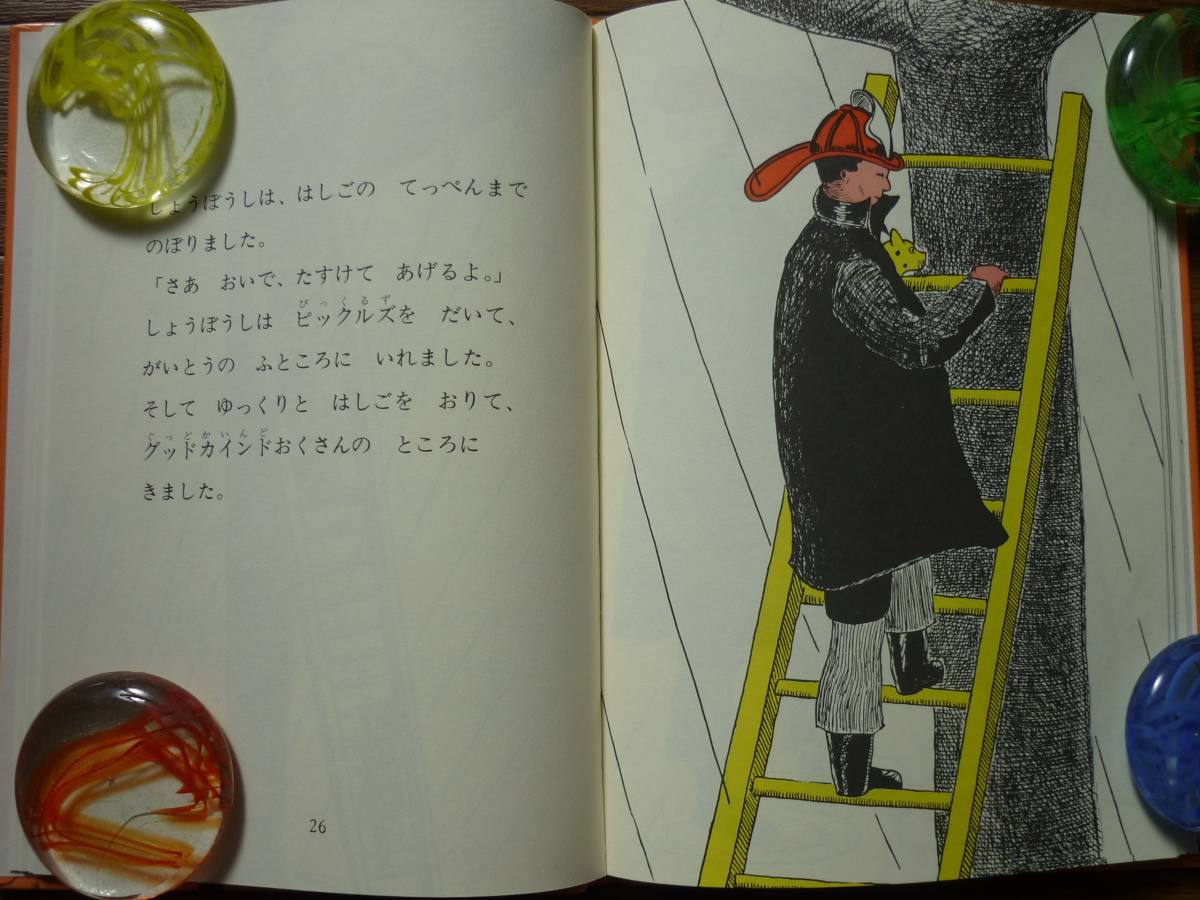 しょうぼうしは、はしごの　てっぺんまで
のぼりました。
「さあ　おいで、たすけて　あげるよ。」
ぴっくるず
しょうぼうしは　ピックルズを　だいて、
がいとうの　ふところに　いれました。
そして　ゆっくりと　はしごを　おりて、
ぐっどかいんど
グッドカインドおくさんの　ところに
きました。
26